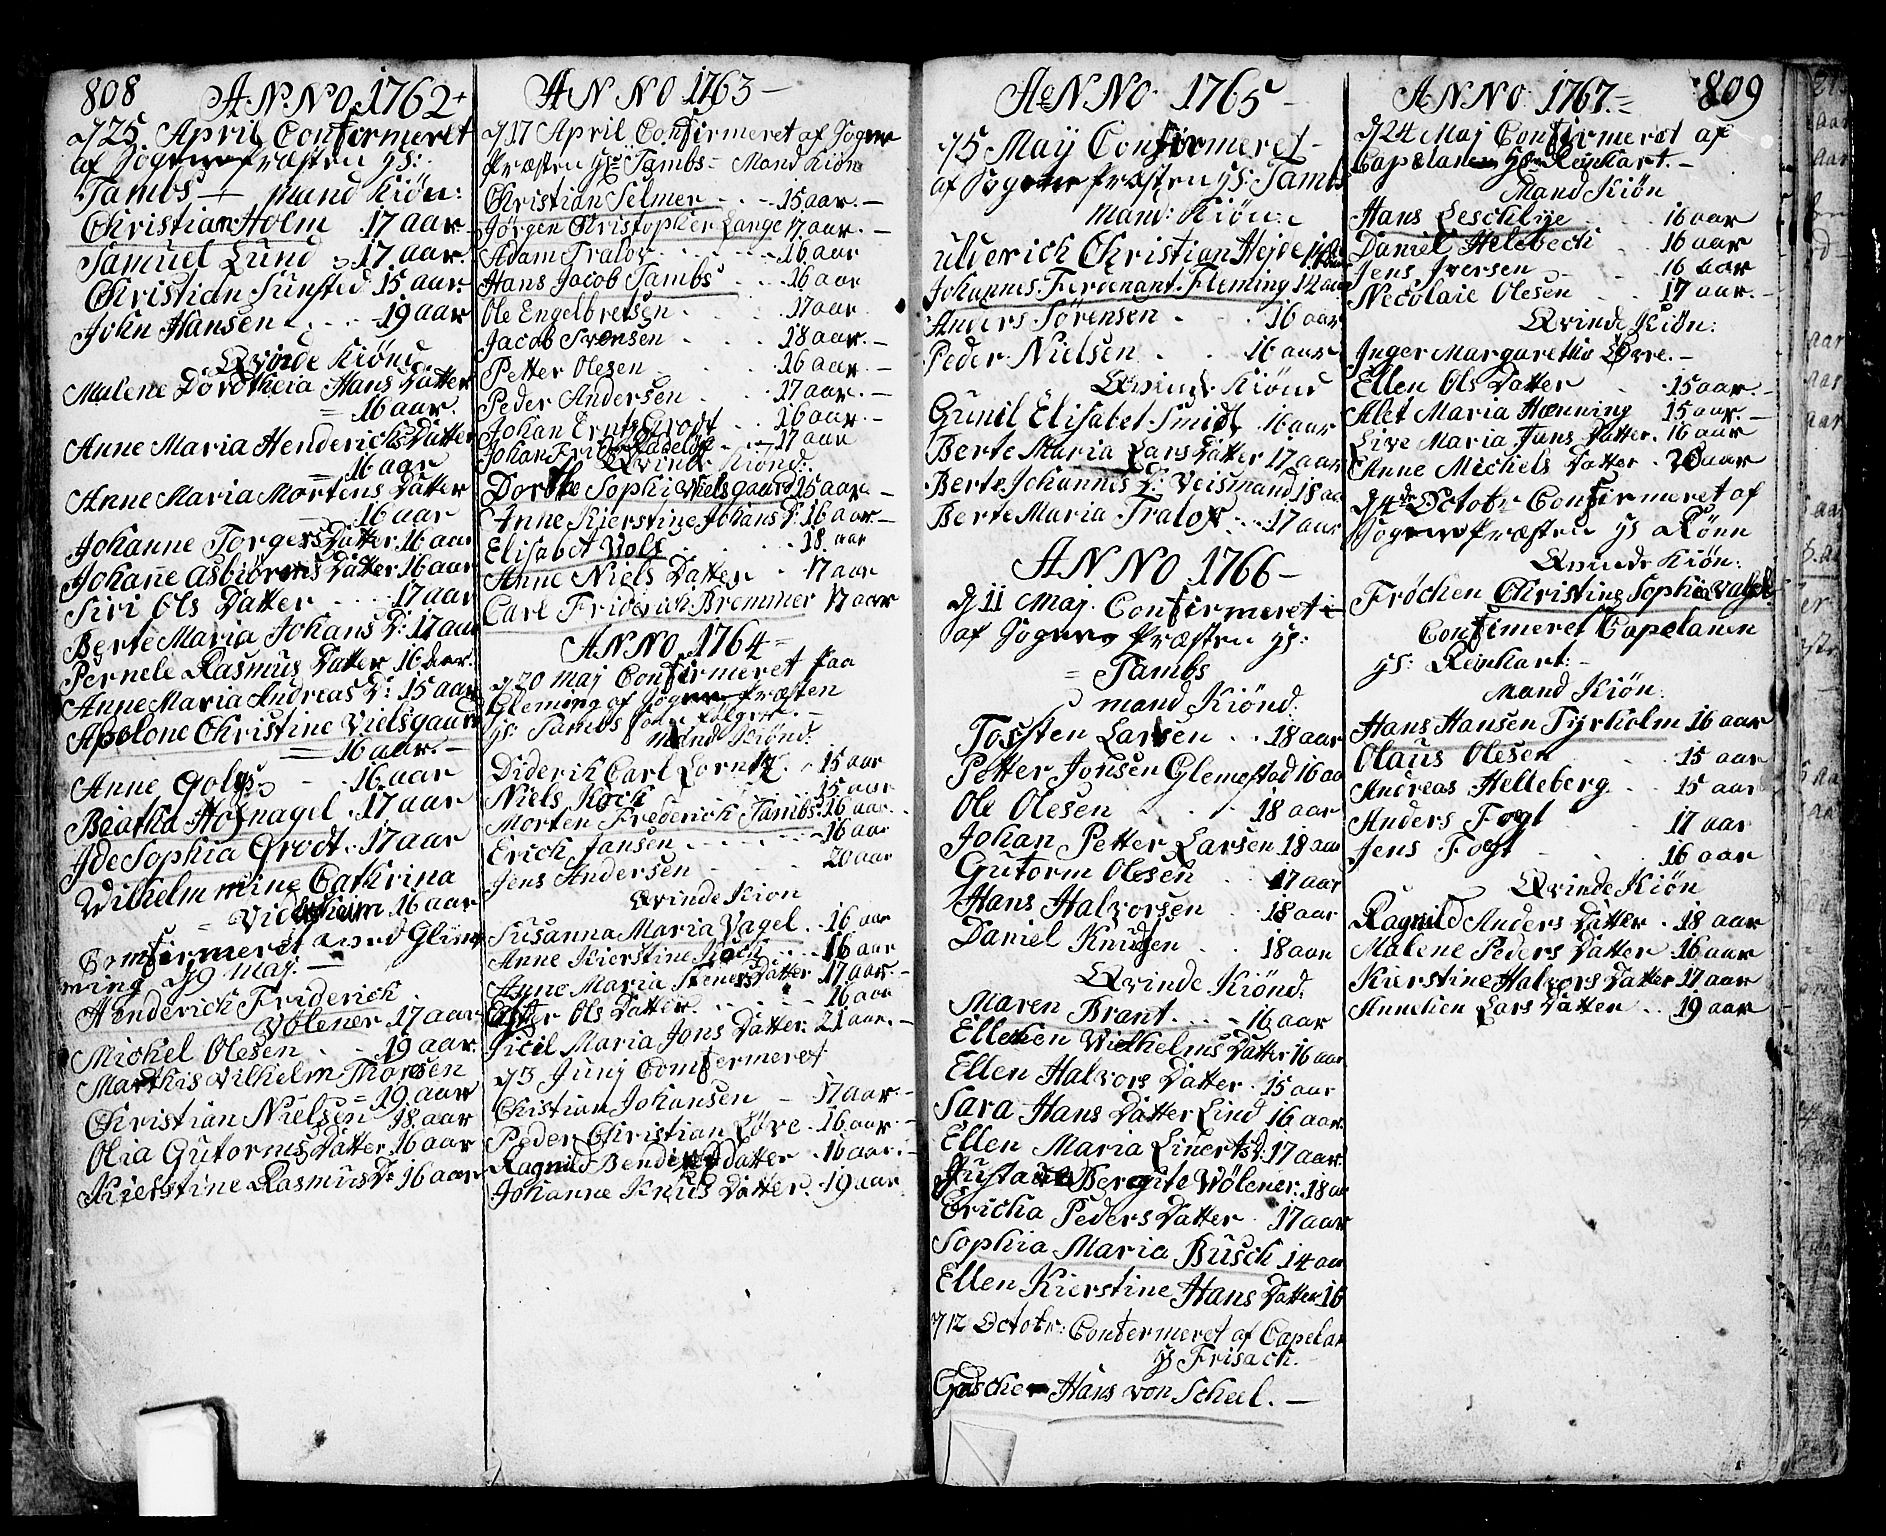 808
ANNO 1762
d 25 April Confirmeret
af Sogne Præsten Hr:
Tambs — Mand Kiøn:
Christian Holm 17 aar
Samuel Lund 17 aar
Christian Sunsted 15 aar
John Hansen 19 aar
Qvinde Kiønd
Malene Dorotheia Hans Datter
= 16 aar.
Anne Maria Henderichs Datter
= 16 aar
Anne Maria Mortens Datter
16 aar
Johanne Torgers Datter 16 aar
Johane Asbiørens Datter 16 aar
Siri Ols Datter 17 aar
Berte Maria Johans D: 17 aar
Pernele Rasmus Datter 16 aar.
Anne Maria Andreas D: 15 aar
Apolone Christine Vielsgaard
= 16 aar. —
Anne 16 aar
Beatha Hofnagel 17 aar
Ide Sophia Grodt 17 aar
Wilhelmmine Cathrina
= 16 aar
Confirmeret ved Glem
ming d 9 Maj. —
Henderich Friderich
Vølener 17 aar
Michel Olesen 19 aar.
Marthis Vilhelm Thorsen
= 19 aar
Christian Nielsen 18 aar
Olia Gutorms Datter 16 aar
Kierstine Rasmus Dr 16 aar
ANNO 1763 —
d 17 April Confirmeret af Sogne
Præsten Hr Tambs — Mand Kiøn
Christian Selmer 15 aar. —
Jørgen Christopher Lange 17 aar. —
Adam Tralos 16 aar
Hans Jacob Tambs 16 aar
Ole Engelbretsen 17 aar
Jacob Svensen 18 aar. —
Petter Olesen 16 aar. —
Peder Andersen 17 aar. —
Johan Ernst Grodt 16 aar. —
Johan Frid 17 aar
Qvinde Kiønd:
Dorthe Sophi Vielsgaard 15 aar —
Anne Kierstine Johans D: 16 aar. —
Elisabet Wols 18 aar
Anne Niels Datter 17 aar
Carl Friderich Bremmer 17 aar
ANNO 1764 =
d 20 Maj Confirmeret paa
Gleming af Sogne Præsten
Hr: Tambs som følger. —
Mand Kiønd:
Diderik Carl Lorntz 15 aar
Niels Koch 15 aar
Morten Frederich Tambs 16 aar
Erich Jansen 16 aar
Jens Andersen 20 aar
Qvinde Kion
Susanna Maria Vagel 16 aar
Anne Kierstine Koch 16 aar
Anne Maria Steners Datter 17 aar. —
Ester Ols Datter 16 aar
Sicil Maria Jons Datter 21 aar. —
d 3 Junj Comfermeret
Chistian Johansen — 17 aar. —
Peder Christian Løve 16 aar. —
Ragnild Datter 16 aar. —
Johanne Knus Datter 19 aar.
ANNO 1765 —
d 5 May Confirmeret —
af Sogne Præsten Hr: Tambs
Mand: Kiøn:
Ulderich Christian Hejde 14 aar
Johannes Ferdenant Fleming 14 aar
Anders Sørensen 16 aar
Peder Nielsen 16 aar
Qvinde Kiønd
Gunil Elisabet Smidt 16 aar
Berte Maria Lars Datter 17 aar
Berte Johannes D: Veismand 18 aar
Berte Maria Tralos 17 aar
ANNO 1766 —
d 11 Maj. Confirmeret
af Sogne Præsten Hr:
= Tambs
Mand Kiønd:
Tosten Larsen 18 aar
Petter Jonsen Glemestad 16 aa
Ole Olesen 18 aar
Johan Petter Larsen 18 aar
Gutorm Olesen 17 aar
Hans Halvorsen 18 aar
Daniel Knudsen 18 aar
Qvinde Kiønd:
Maren Brant 16 aar
Ellechen Wielhelms Datter 16 aar
Ellen Halvors Datter 15 aar
Sara Hans Datter Lind 16 aar
Ellen Maria Linerts D: 17 aar
Bergite Vølener 18 aar
Ericha Peders Datter 17 aar
Sophia Maria Busch 14 aar
Ellen Kierstine Hans Datter 16
d 12 Octobr: Confermeret af Capelan
Hr Frisach. —
Hans von Scheel. —
ANNO 1767 =
809
d 24 Maj Confirmeret af
Capelanen Hr Reinhart. —
Mand Kiøn
Hans Leschlye 16 aar
Daniel Helebech 16 aar
Jens Iversen 16 aar
Necolaie Olesen 17 aar. —
Qvinde Kiøn:
Inger Margaretha —
Ellen Ols Datter 15 aar
Alet Maria Hønning 15 aar
Live Maria Juns Datter 16 aar
Anne Michels Datter 20 aar
d 4de Octobr Confirmeret af
Sogne Præsten Hr Rønn
Qvinde Kiøn:
Frøchen Christine Sophia
Confimeret Capelanen
Hr: Reinhart: —
Mand Kiøn:
Hans Hansen Tyrholm 16 aar
Olaus Olesen 15 aar
Andreas Helleberg 15 aar
Anders Fogt 17 aar
Jens Fogt 16 aar
Qvinde Kiøn
Ragnild Anders Datter 18 aar
Malene Peders Datter 16 aar
Kierstine Halvors Datter 17 aar
Annichen Lars Datter 19 aar